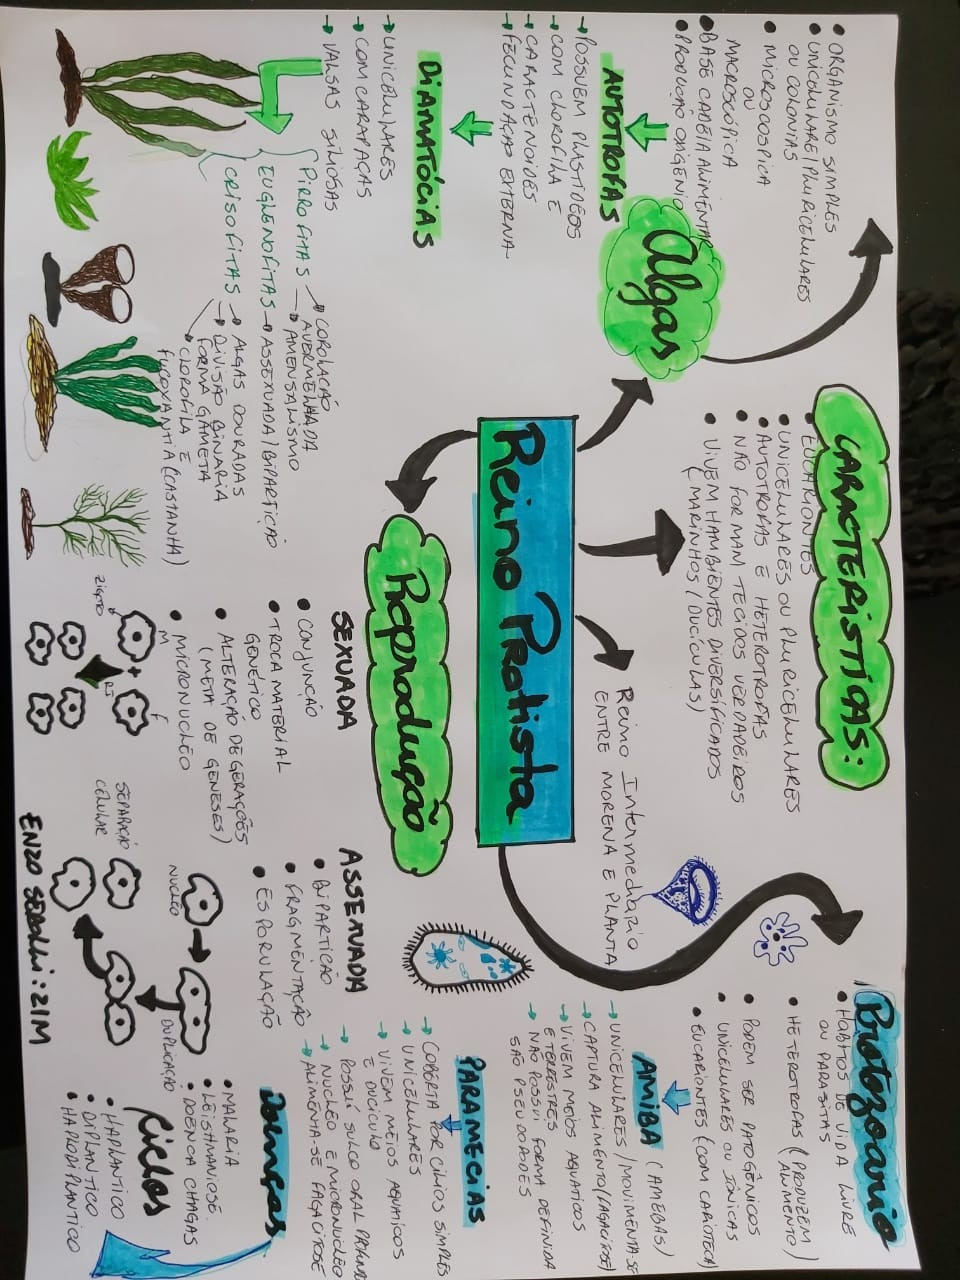 Reino Protista
CARACTERISTICAS:
• EUCARIONTES
• UNICELULARES OU PLURICELULARES
• AUTOTROFAS E HETEROTROFAS
• NÃO FORMAM TECIDOS VERDADEIROS
• VIVEM HAMBIENTES DIVERSIFICADOS
(MARINHOS/DUCÍCULAS)
Algas
• ORGANISMO SIMPLES
• UNICELULARE/PLURICELULARES
OU COLONIAS
• MICROSCOSPICA
OU
MACROSCÓPICA
• BASE CADEIA ALIMENTAR
• PRODUÇÃO OXIGENIO
AUTOTROFAS
→ POSSUEM PLASTIDEOS
→ COM CLOROFILA E
→ CARACTENOIDES
→ FECUNDAÇÃO EXTERNA
DIAMATÓCIAS
→ UNICELULARES
→ COM CARAPAÇAS
→ VALSAS SILIOSAS
PIRROFITAS → COROLAÇÃO
AVERMELHADA
→ AMENSALISMO
EUGLENOFITAS → ASSEXUADA/BIPARTIÇÃO
CRISOFITAS → ALGAS DOURADAS
→ DIVISÃO BINARIA
FORMA GÂMETA
→ CLOROFILA E
FUCOXANTIA (CASTANHA)
Reino Intermediário
ENTRE MORENA E PLANTA
Reprodução
SEXUADA
• CONJUNÇÃO
• TROCA MATERIAL
GENÉTICO
• ALTERAÇÃO DE GERAÇÕES
(META DE GENESES)
• MICRONUCLEO
ZIGOTO
M
F
R!
ASSEXUADA
• BIPARTIÇÃO
• FRAGMENTAÇÃO
• ESPORULAÇÃO
NUCLEO
DUPLICAÇÃO
SEPARAÇÃO
CÉLULAR
ENZO SEBOLHI: 21M
Protozoario
• HABITOS DE VIDA LIVRE
OU PARASITAS
• HETEROTROFAS (PRODUZEM
ALIMENTO)
• PODEM SER PATOGÊNICOS
• UNICELULARES OU IÔNICAS
• EUCARIONTES (COM CARIOTECA)
AMIBA (AMEBAS)
→ UNICELULARES/MOVIMENTA-SE
→ CAPTURA ALIMENTO
→ VIVEM MEIOS AQUATICOS
E TERRESTRES
→ NÃO POSSUI FORMA DEFINIDA
SÃO PSEUDOADES
PARAMECIAS
→ COBERTA POR CÍLIOS SIMPLES
→ UNICELULARES
→ VIVEM MEIOS AQUATICOS
E DUCÍCULO
→ POSSUÍ SULCO ORAL
→ NUCLEO E MICRONUCLEO
→ ALIMENTA-SE FAGAOTOSE
Doenças
• MALARIA
• LEISTHMANIOSE.
• DOENÇA CHAGAS
Ciclos
• HAPLANTICO
• DIPLANTICO
• HAPLODIPLANTICO